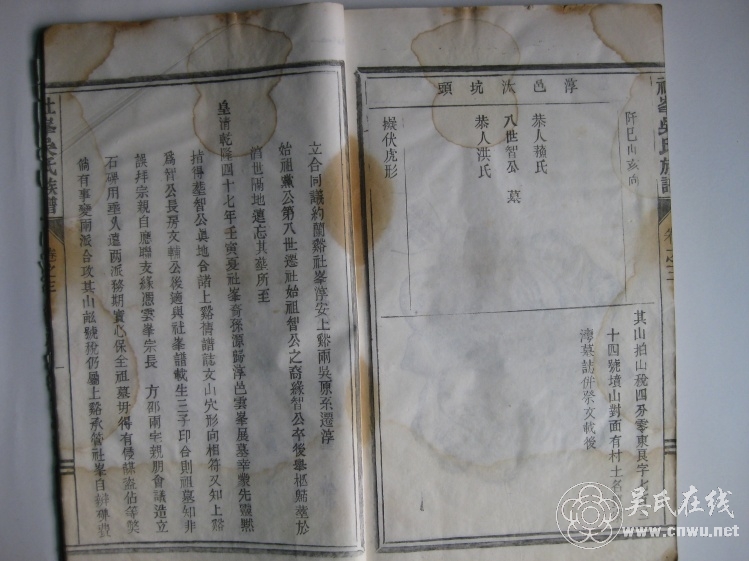 淳邑汰坑頭
阡巳山亥向
恭人項氏
八世智公墓
恭人洪氏
擬伏虎形
其山拍山稅四分零東良字七
十四號墳山對面有村土名
灣墓誌併祭文載後
社峯吳氏族譜
卷之三
立合同議約蘭谿社峯淳安上谿兩吳原系遷淳
始祖黨公第八世遷社始祖智公之裔緣智公卒後舉柩歸塟於
淳世隔地遠忘其塟所至
皇清乾隆四十七年壬寅夏社峯裔孫源歸淳邑雲峯展墓幸蒙先靈默
指得塟智公眞地合諸上谿舊譜誌文山穴形向相符又知上谿
爲智公長房文輔公後適與社峯譜載生三子印合則祖墓知非
誤拜宗親自應聯支緣憑雲峯宗長 方邵兩宅親朋會議造立
石碑用垂久遠兩派務期實心保全祖墓毋得有侵謀盜佔等獘
倘有事變兩派合攻其山畝號稅仍屬上谿承管社峯自辦磚費
社峯吳氏族譜
卷之三
吳氏在线
www.cnwu.net